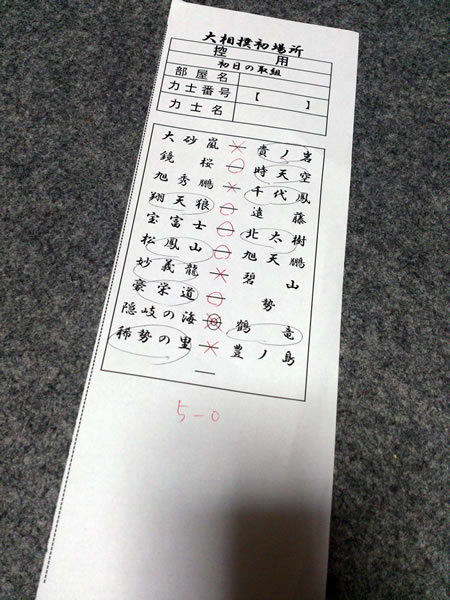 大相撲初場所
控 用
初日の取組
部屋名
力士番号 【 】
力士名
大砂嵐 貴ノ岩
鏡桜 時天空
旭秀鵬 千代鳳
翔天狼 遠藤
宝富士 北太樹
松鳳山 旭天鵬
妙義龍 碧山
豪栄道 勢
隠岐の海 鶴竜
稀勢の里 豊ノ島
5-0